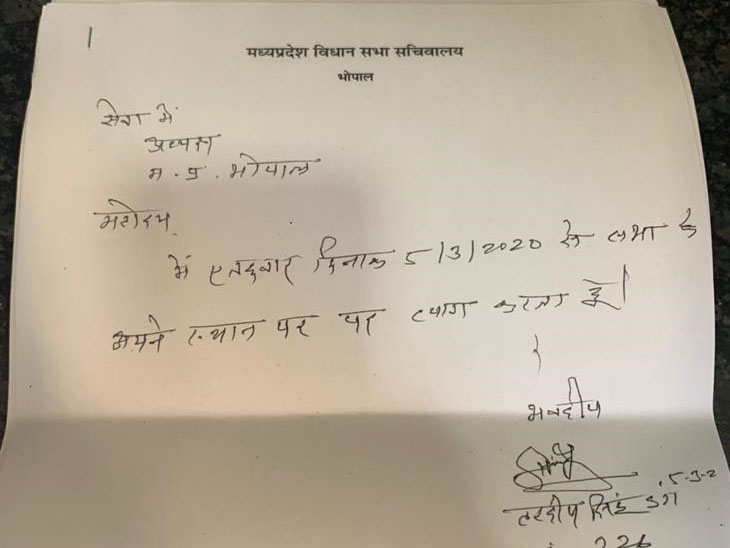 मध्यप्रदेश विधान सभा सचिवालय
भोपाल
सेवा में
अध्यक्ष
म. प्र. भोपाल
महोदय
में एतद्द्वारा दिनांक 5/3/2020 से सभा के
अपने स्थान पर त्याग करता हूँ।
भवदीय
5-3-2
हरदीप सिंह डंग
226